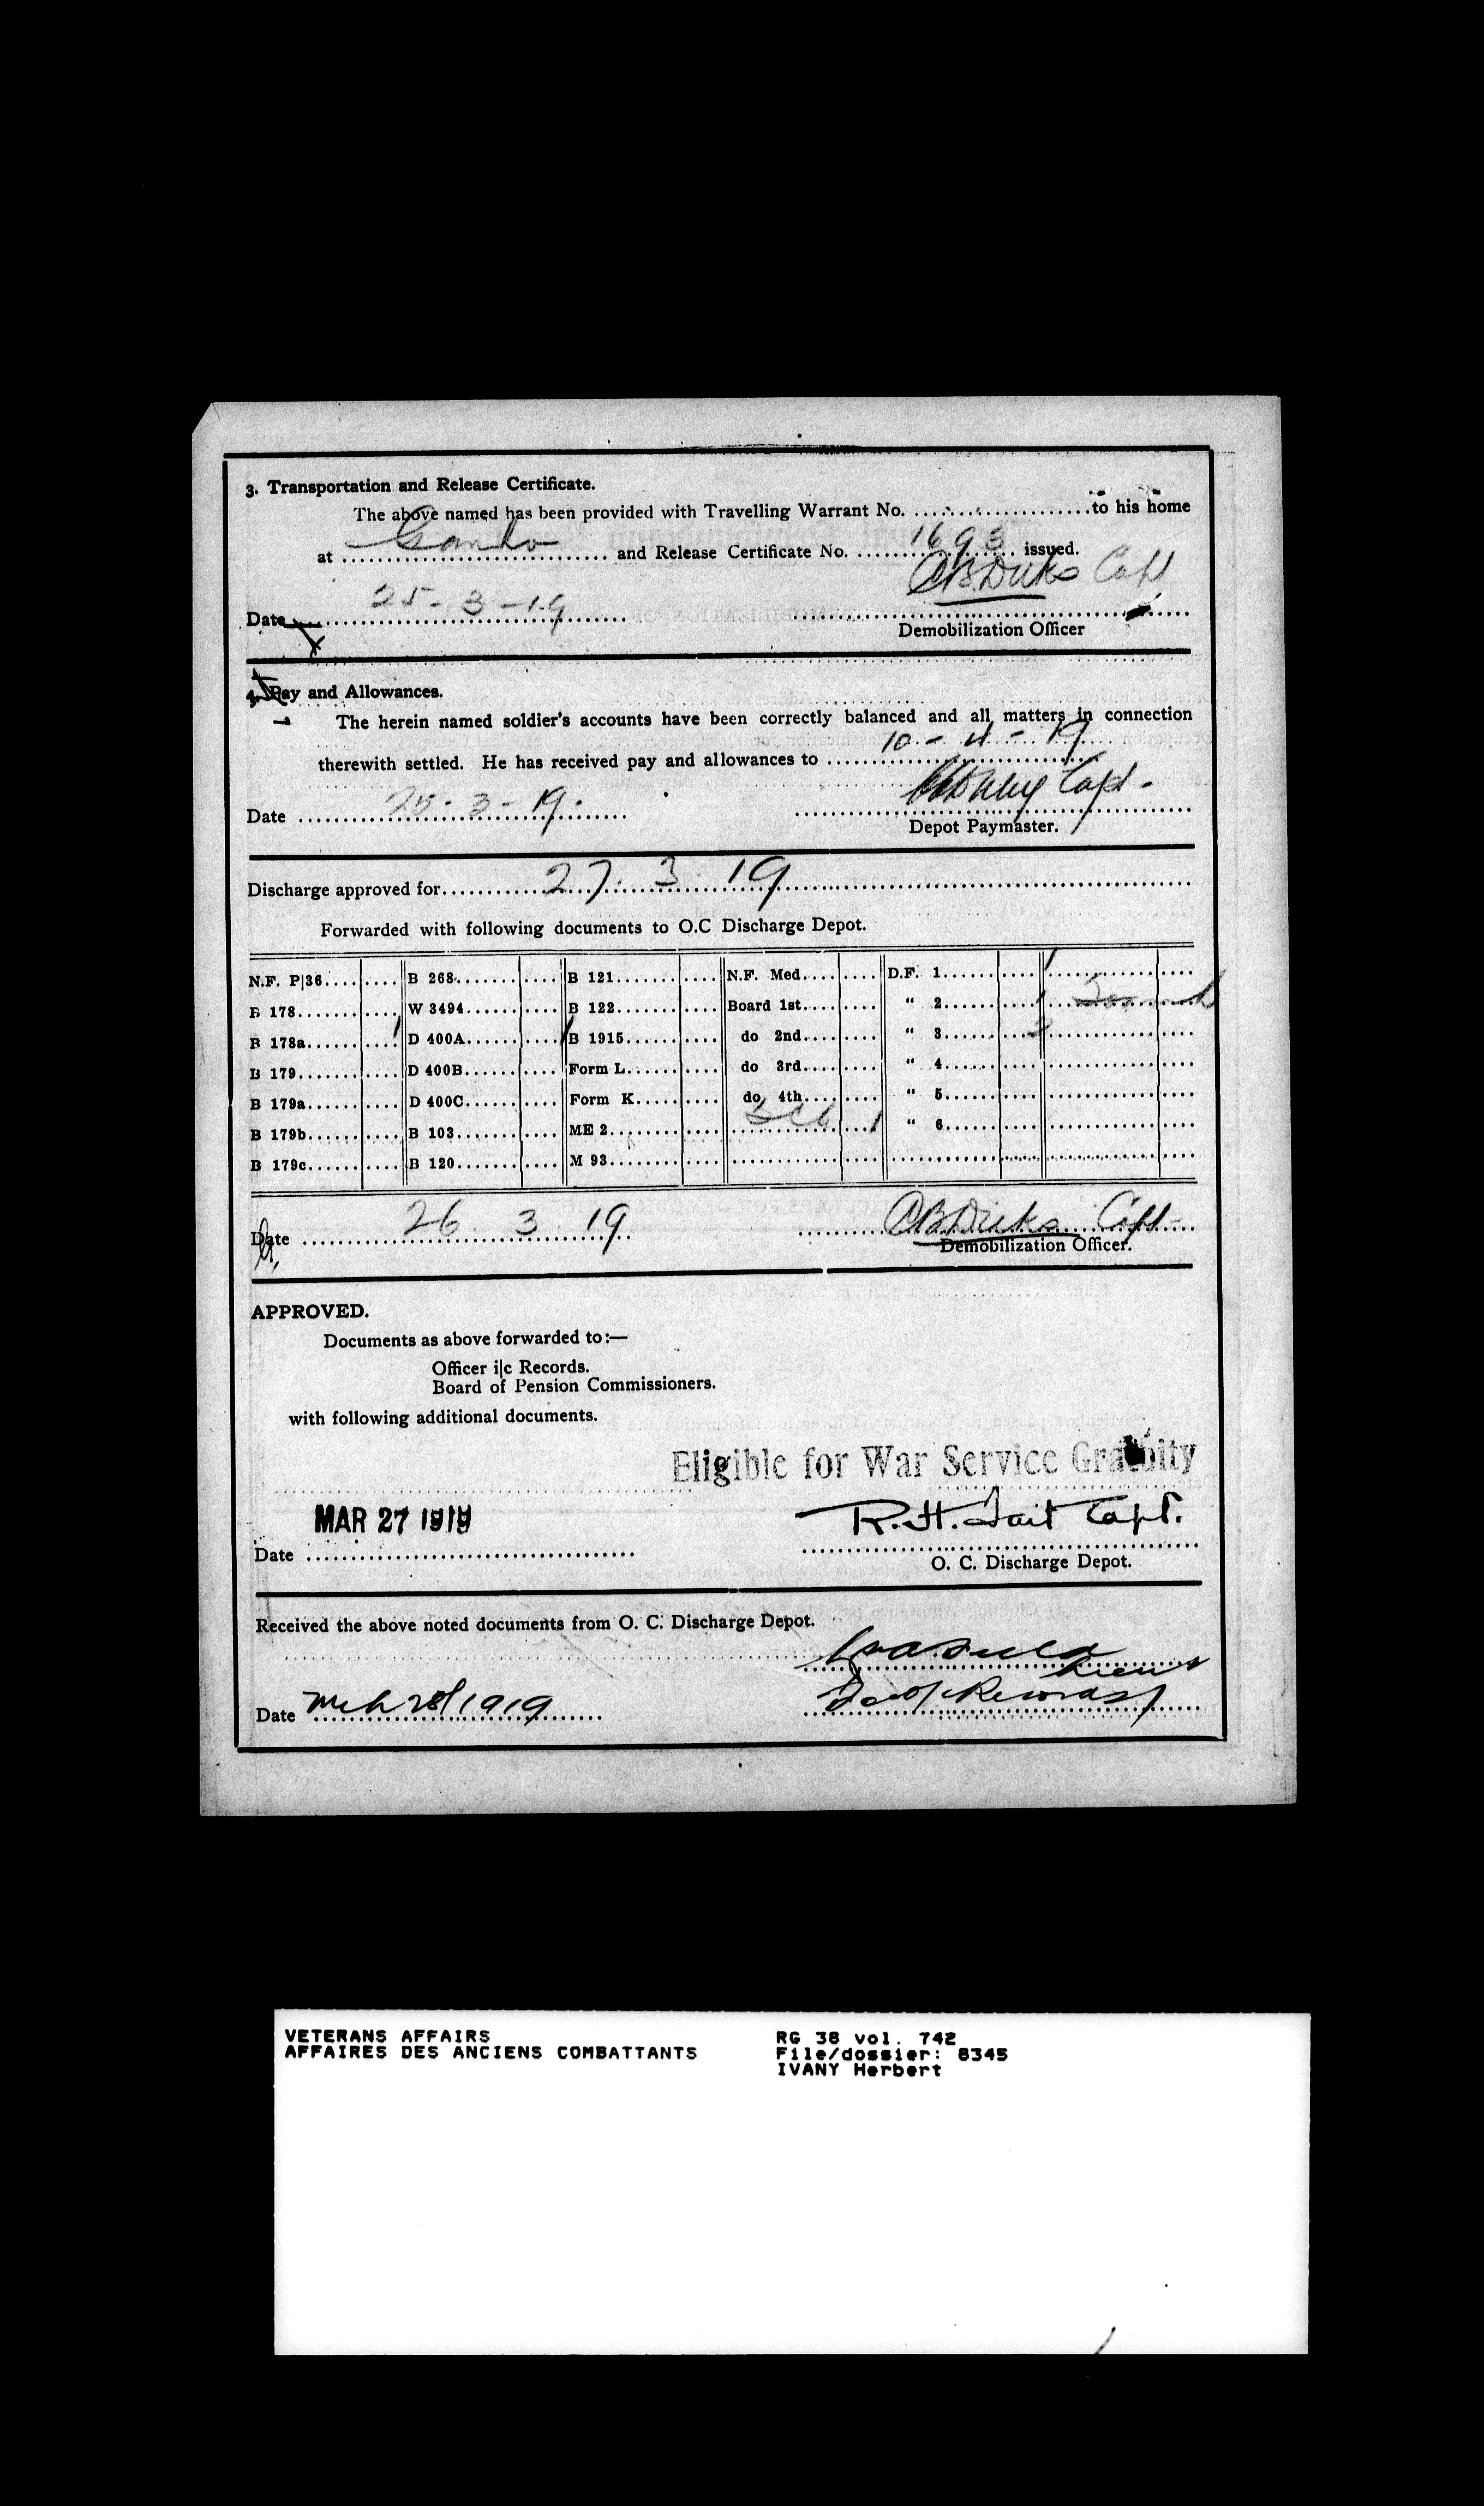 3. Transportation and Release Certificate.
The above named has been provided with Travelling Warrant No. .................... to his home
at ........ and Release Certificate No. 1693 issued.
C.B. Dicks Capt
Date 25-3-19
Demobilization Officer
4. Pay and Allowances.
The herein named soldier's accounts have been correctly balanced and all matters in connection
therewith settled. He has received pay and allowances to 10-4-19
Capt.
Date 25-3-19.
Depot Paymaster.
Discharge approved for 27. 3 19
Forwarded with following documents to O.C Discharge Depot.
N.F. P|36 B 268 B 121 N.F. Med. D.F. 1 1
B 178 W 3494 B 122 Board 1st " 2 1
B 178a 1 D 400A 1 B 1915 do 2nd " 3 2
B 179 D 400B Form L do 3rd " 4
B 179a D 400C Form K do 4th " 5
B 179b B 103 ME 2 1 " 6
B 179c B 120 M 93
Date 26. 3. 19 C.B. Dicks Capt
Demobilization Officer.
APPROVED.
Documents as above forwarded to:—
Officer i|c Records.
Board of Pension Commissioners.
with following additional documents.
Eligible for War Service Gratuity
MAR 27 1919 R.H. Tait Capt.
Date
O. C. Discharge Depot.
Received the above noted documents from O. C. Discharge Depot.
Lieut
Date Mch 28/1919 Records
VETERANS AFFAIRS RG 38 vol. 742
AFFAIRES DES ANCIENS COMBATTANTS File/dossier: 8345
IVANY Herbert